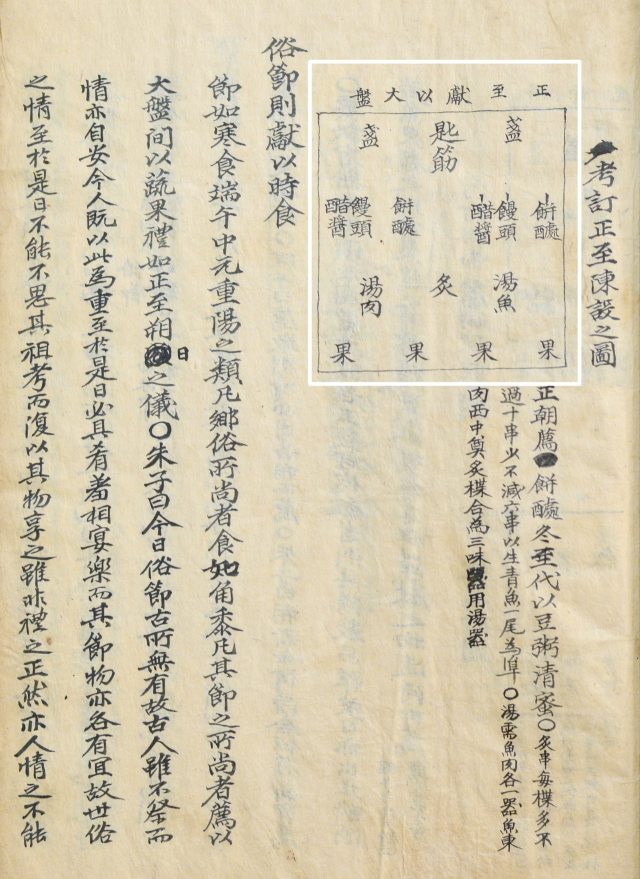 考訂正至陳設之圖
正至獻以大盤
盞
匙筯
盞
餠
饅頭
醋醬
餠
饅頭
醋醬
湯魚
炙
湯肉
果
果
果
果
正朝薦餠 冬至代以豆粥清蜜〇炙串每楪多不
過十串少不減六串以生青魚一尾為準〇湯需魚肉各一器魚東
肉西中奠炙楪合為三味器用湯器
俗節則獻以時食
節如寒食端午中元重陽之類凡鄉俗所尚者食如角黍凡其節之所尚者薦以
大盤間以蔬果禮如正至朔日之儀〇朱子曰今日俗節古所無有故古人雖不祭而
情亦自安今人既以此為重至於是日必具肴羞相宴樂而其節物亦各有宜故世俗
之情至於是日不能不思其祖考而復以其物享之雖非禮之正然亦人情之不能